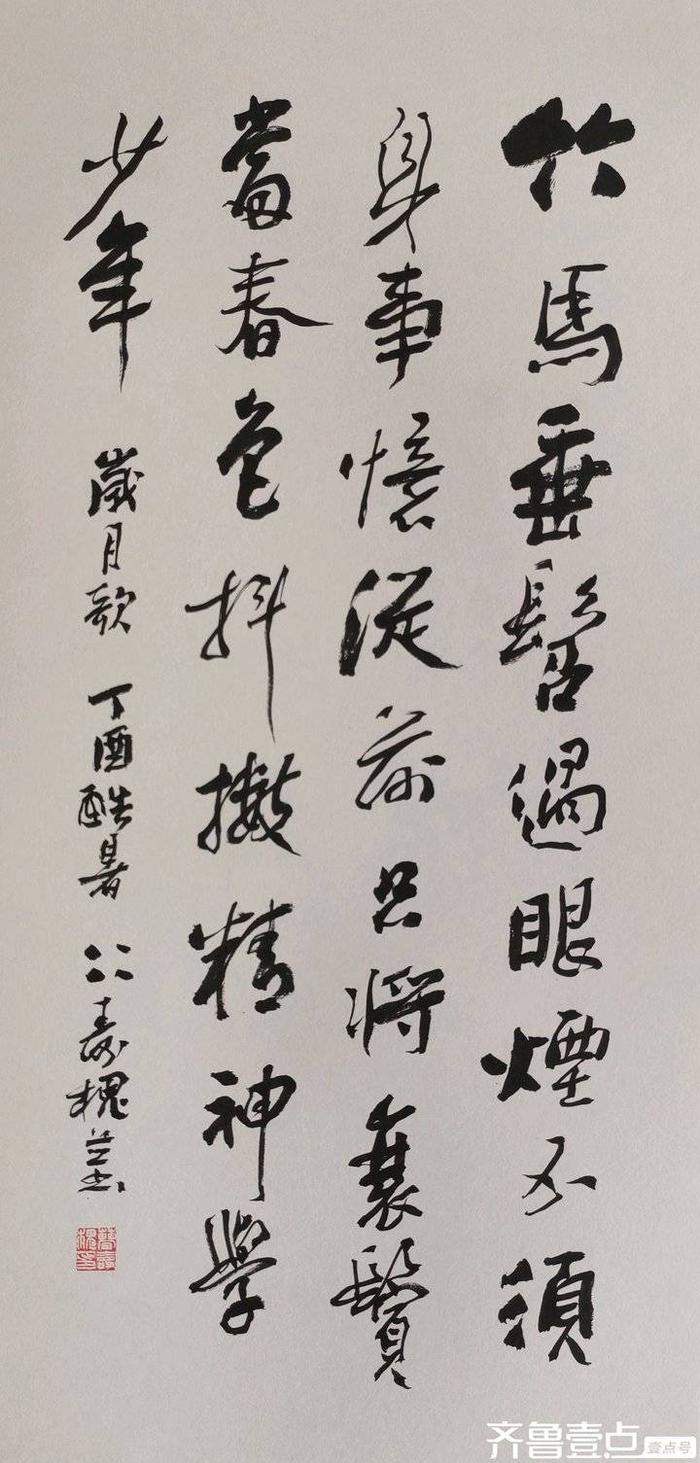 竹馬垂髫過眼煙不須
身事憶從前只將衰鬢
當春色抖擻精神學
少年 歲月歌 丁酉酷暑 公壽槐並書
齐鲁壹点 壹点号